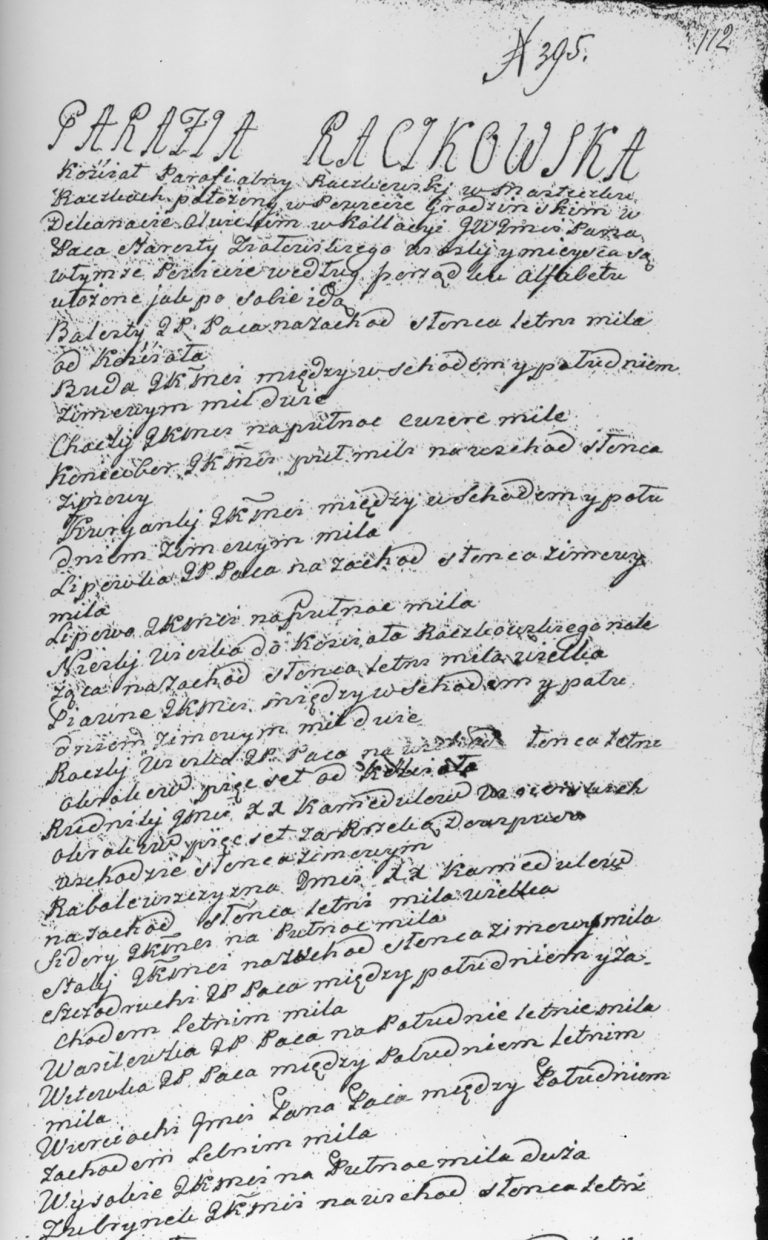 N 395.
112
PARAFIA RACZKOWSKA
Kościoł Parafialny Raczkowski w Miasteczku
Raczkach położony w Powiecie Grodzińskim w
Dekanacie Olwickim w Kollacyi JWJmci Pana
Paca Starosty Ziołowskiego wioski y mieysca są
w tymże Powiecie według porządku Alfabetu
ułożone jak po sobie idą
Bakoszty JP Paca na zachod słonca letni mila
od Kościoła
Buda JKMci między wschodem y południem
zimowym mil dwie
Choczki JKMci na pułnoc cwierc mile
Koniecbor JKMci puł mili na wschod słonca
zimowy
Kuryanki JKMci między wschodem y połu
dniem zimowym mila
Lipowka JP Paca na zachod słonca zimowy
mila
Lipowo JKMci na pułnoc mila
Nieszki Wioska do Kościoła Raczkowskiego nale
żąca na zachod słonca letni mila wielka
Piarine JKMci między wschodem y połu
dniem zimowym mil dwie
Raczki Wioska JP Paca na wschod łonca letni
okrokow pięcset od Kościoła
Rudniki Jmci XX Kamedułow
okrokow pięcset za Rzeką Dowspudą
wschodzie słonca zimowym
Rabalewszczyzna Jmci XX Kamedułow
na zachod słonca letni mila wielka
Sidory JKMci na Pułnoc mila
Stoki JKMci na zachod słonca zimowy mila
Szczodruchi JP Paca między południem y za-
chodem Letnim mila
Wasilowka JP Paca na Południe letnie mila
Witowka JP Paca między Południem letnim
mila
Wierciochi Jmci Pana Paca między Południem
zachodem Letnim mila
Wysokie JKMci na Pułnoc mila duża
Zubrynek JKMci na wschod słonca letni